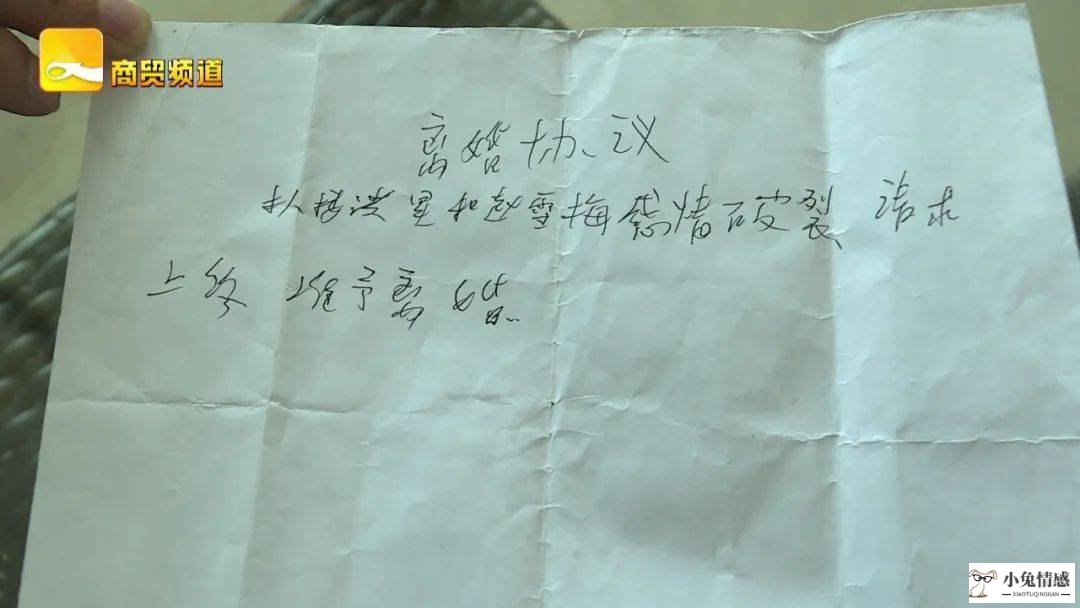 商贸频道
离婚协议
洪星和赵雪梅感情破裂 请求
上 准予离婚.
小兔情感
XIAOTUQINGGAN